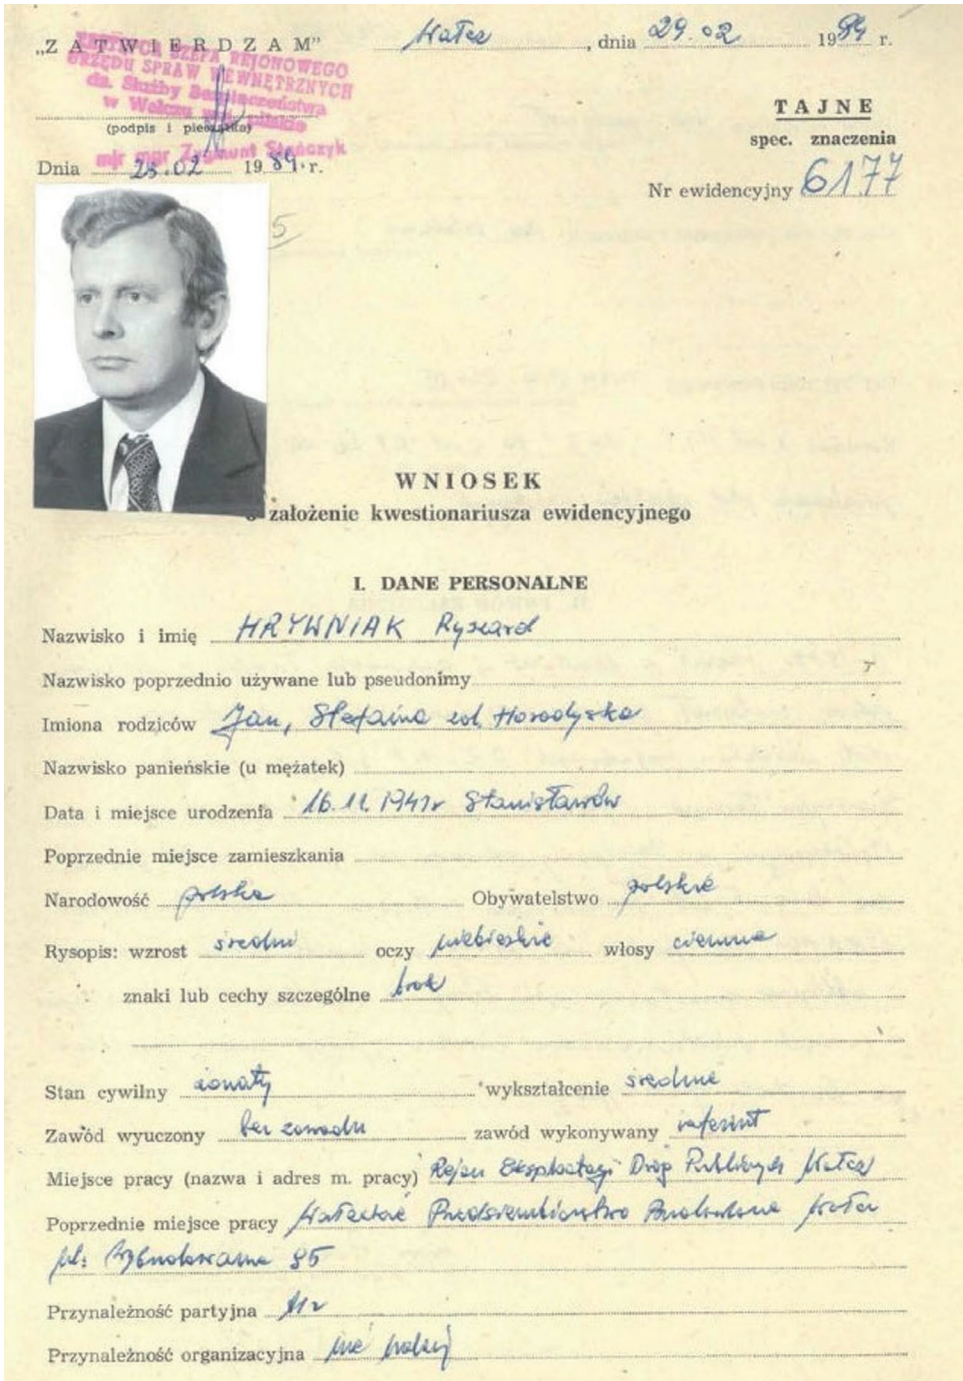 „ZATWIERDZAM” Wałcz, dnia 29.02 1984 r.
ZASTĘPCA SZEFA REJONOWEGO
URZĘDU SPRAW WEWNĘTRZNYCH
ds. Służby Bezpieczeństwa
w Wałczu
(podpis i pieczątka)
mjr mgr Zygmunt Stańczyk
Dnia 29.02 1984 r.
TAJNE
spec. znaczenia
Nr ewidencyjny 6177
5
WNIOSEK
o założenie kwestionariusza ewidencyjnego
I. DANE PERSONALNE
Nazwisko i imię HRYWNIAK Ryszard
Nazwisko poprzednio używane lub pseudonimy
Imiona rodziców Jan, Stefania zd. Horodyska
Nazwisko panieńskie (u mężatek)
Data i miejsce urodzenia 16.11.1941r Stanisławów
Poprzednie miejsce zamieszkania
Narodowość polska Obywatelstwo polskie
Rysopis: wzrost średni oczy niebieskie włosy ciemne
znaki lub cechy szczególne brak
Stan cywilny żonaty wykształcenie średnie
Zawód wyuczony bez zawodu zawód wykonywany referent
Miejsce pracy (nazwa i adres m. pracy) Rejon Eksploatacji Dróg Publicznych Wałcz
Poprzednie miejsce pracy Wałeckie Przedsiębiorstwo Budowlane Wałcz
ul. 85
Przynależność partyjna
Przynależność organizacyjna nie należy